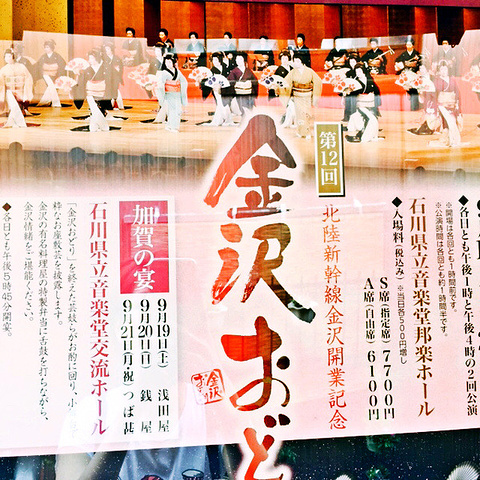 ◆各日とも午後1時と午後4時の2回公演
※開場は各回とも1時間前です。
※公演時間は各回とも約1時間半です。
◆石川県立音楽堂邦楽ホール
◆入場料(税込み) ※当日各500円増し
S席(指定席) 7700円
A席(自由席) 6100円
第12回
北陸新幹線金沢開業記念
金沢おど
金沢
加賀の宴
9月19日(土) 浅田屋
9月20日(日) 銭屋
9月21日(月・祝) つば甚
石川県立音楽堂交流ホール
「金沢おどり」を終えた芸妓らがお酌に回り、小
粋なお座敷芸を披露します。
金沢の有名料理屋の特製弁当に舌鼓を打ちながら、
金沢情緒をご堪能ください。
◆各日とも午後5時45分開宴。